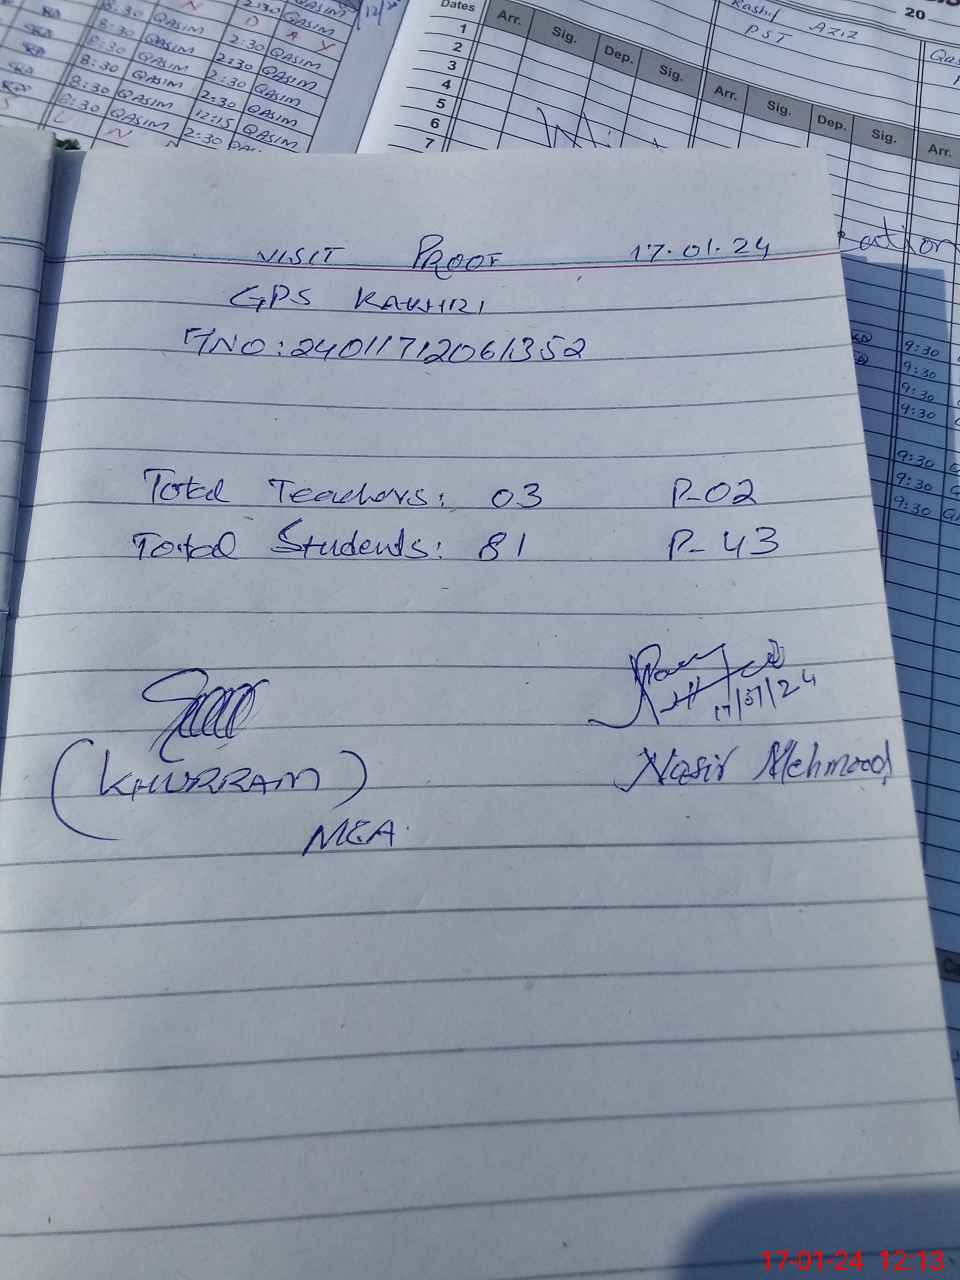 8:30 QASIM 2:30 QASIM
8:30 QASIM 2:30 QASIM
8:30 QASIM 2:30 QASIM
8:30 QASIM 2:30 QASIM
8:30 QASIM 12:15 QASIM
2:30
Dates Arr. Sig. Dep. Sig. Arr. Sig. Dep. Sig. Arr.
Kashif Aziz
PST
20
1
2
3
4
5
6
7
VISIT PROOF 17.01.24
GPS KAKHRI
F/NO: 24011712061352
Total Teachers: 03 P-02
Total Students: 81 P-43
17/01/24
(KHURRAM) Nasir Mehmood
MEA
9:30
9:30
9:30
9:30
9:30
9:30
9:30
17-01-24 12:13